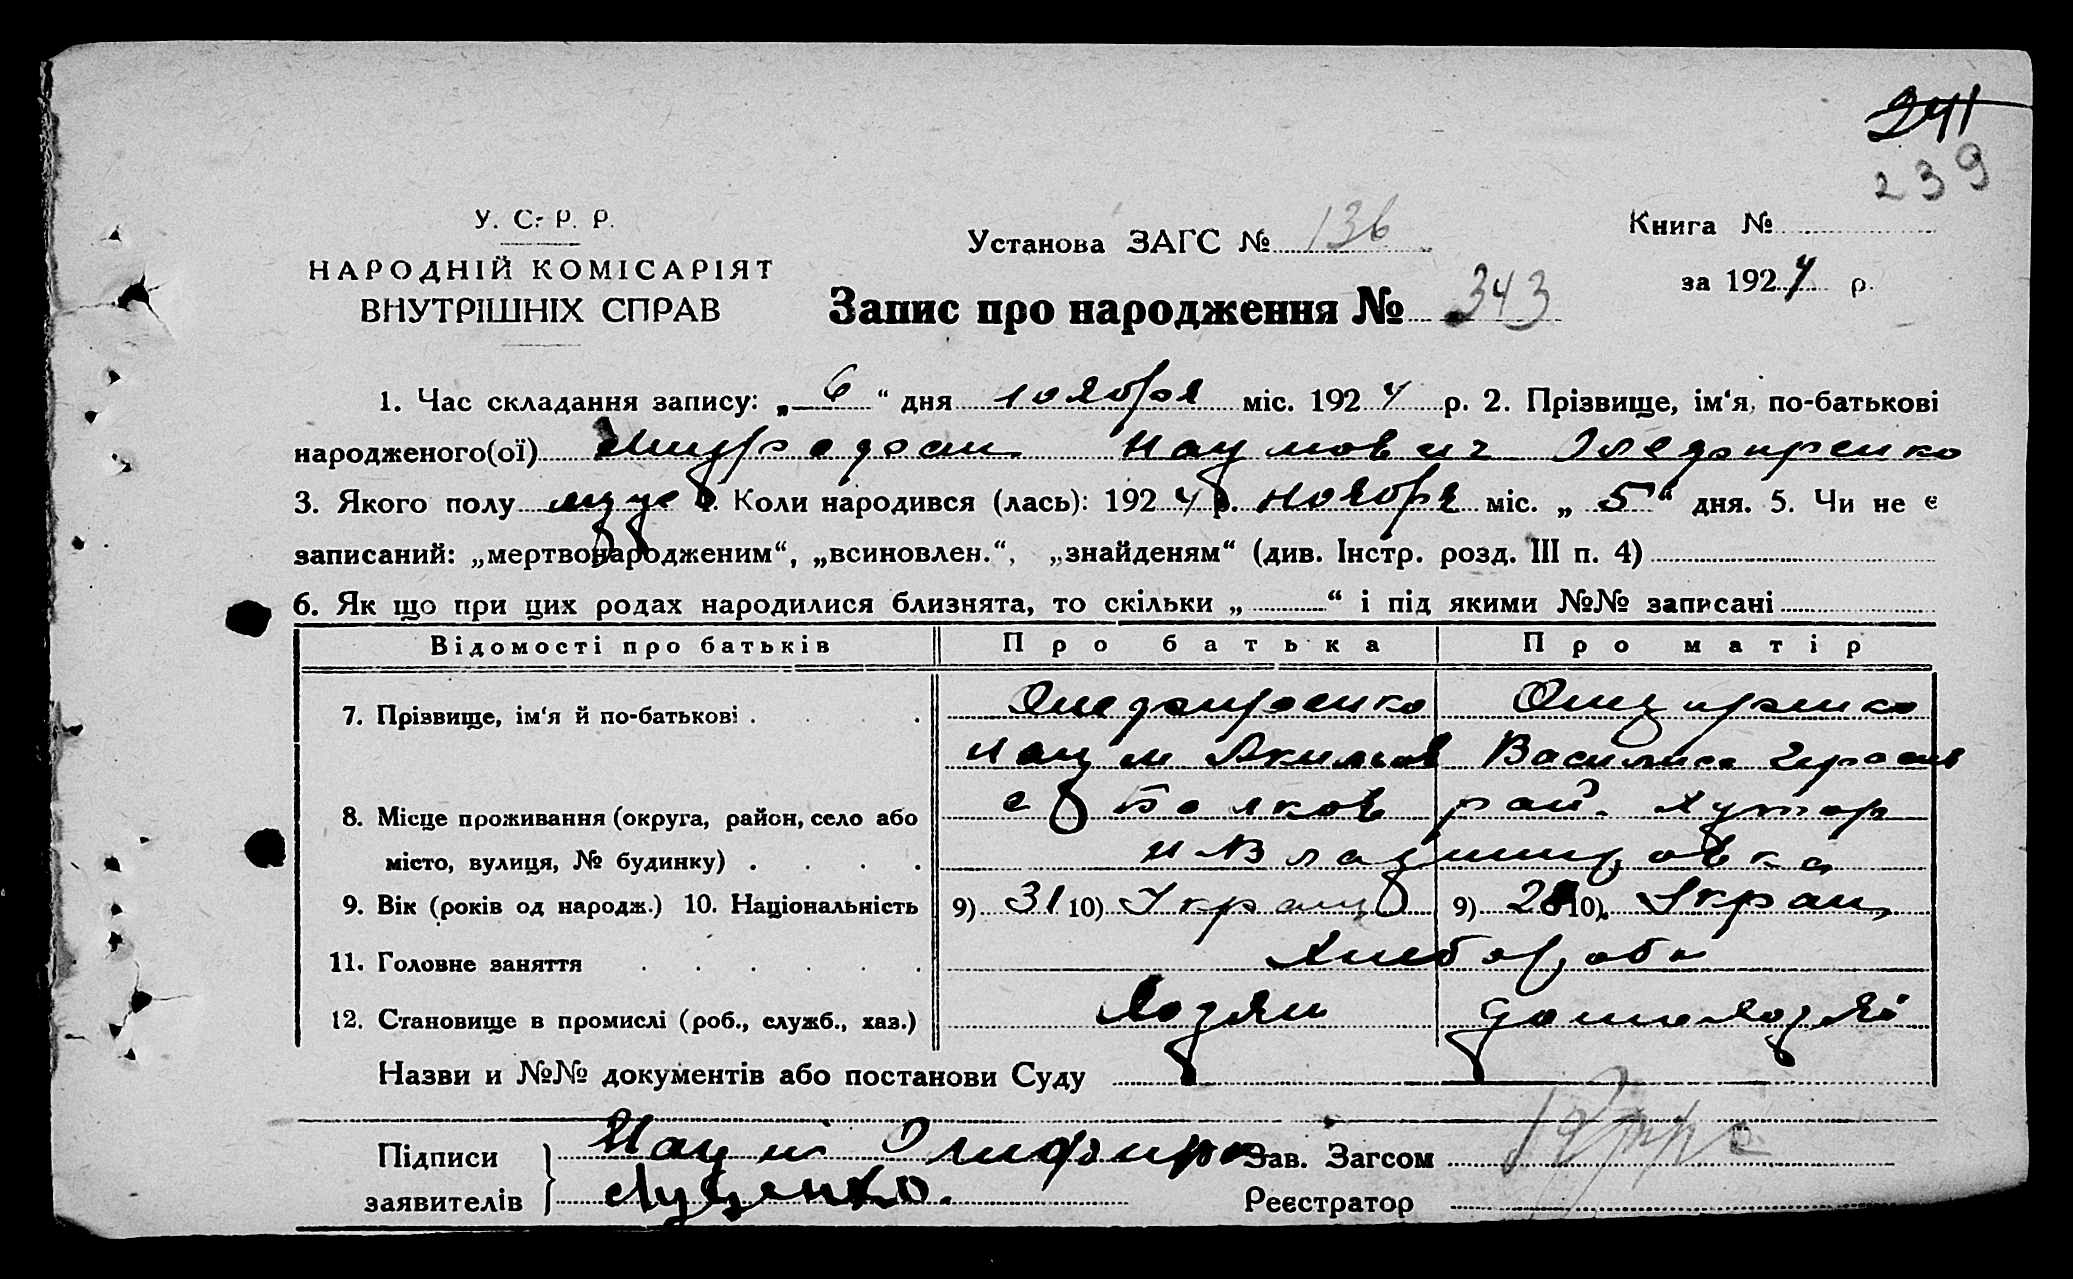 241
239
У. С. Р. Р.
НАРОДНІЙ КОМІСАРІЯТ
ВНУТРІШНІХ СПРАВ
Установа ЗАГС № 136
Книга №
за 1924 р.
Запис про народження № 343
1. Час складання запису: „ 6 “ дня ноября міс. 1924 р. 2. Прізвище, ім‘я, по-батькові
народженого(ої) Наумович
3. Якого полу муж. Коли народився (лась): 1924 р. ноября міс. „ 5 “ дня. 5. Чи не є
записаний: „мертвонародженим“, „всиновлен.“, „знайденям“ (див. Інстр. розд. III п. 4)
6. Як що при цих родах народилися близнята, то скільки „ “ і під якими №№ записані
Відомості про батьків Про батька Про матір
7. Прізвище, ім‘я й по-батькові
Наум Василиса
8. Місце проживання (округа, район, село або рай. Хутор
місто, вулиця, № будинку)
9. Вік (років од народж.) 10. Національність 9) 31 10) 9) 28 10)
11. Головне заняття Хлебороб
12. Становище в промислі (роб., служб., хаз.) Хозяин
Назви и №№ документів або постанови Суду
Підписи Наум Зав. Загсом
заявителів Луценко. Реєстратор